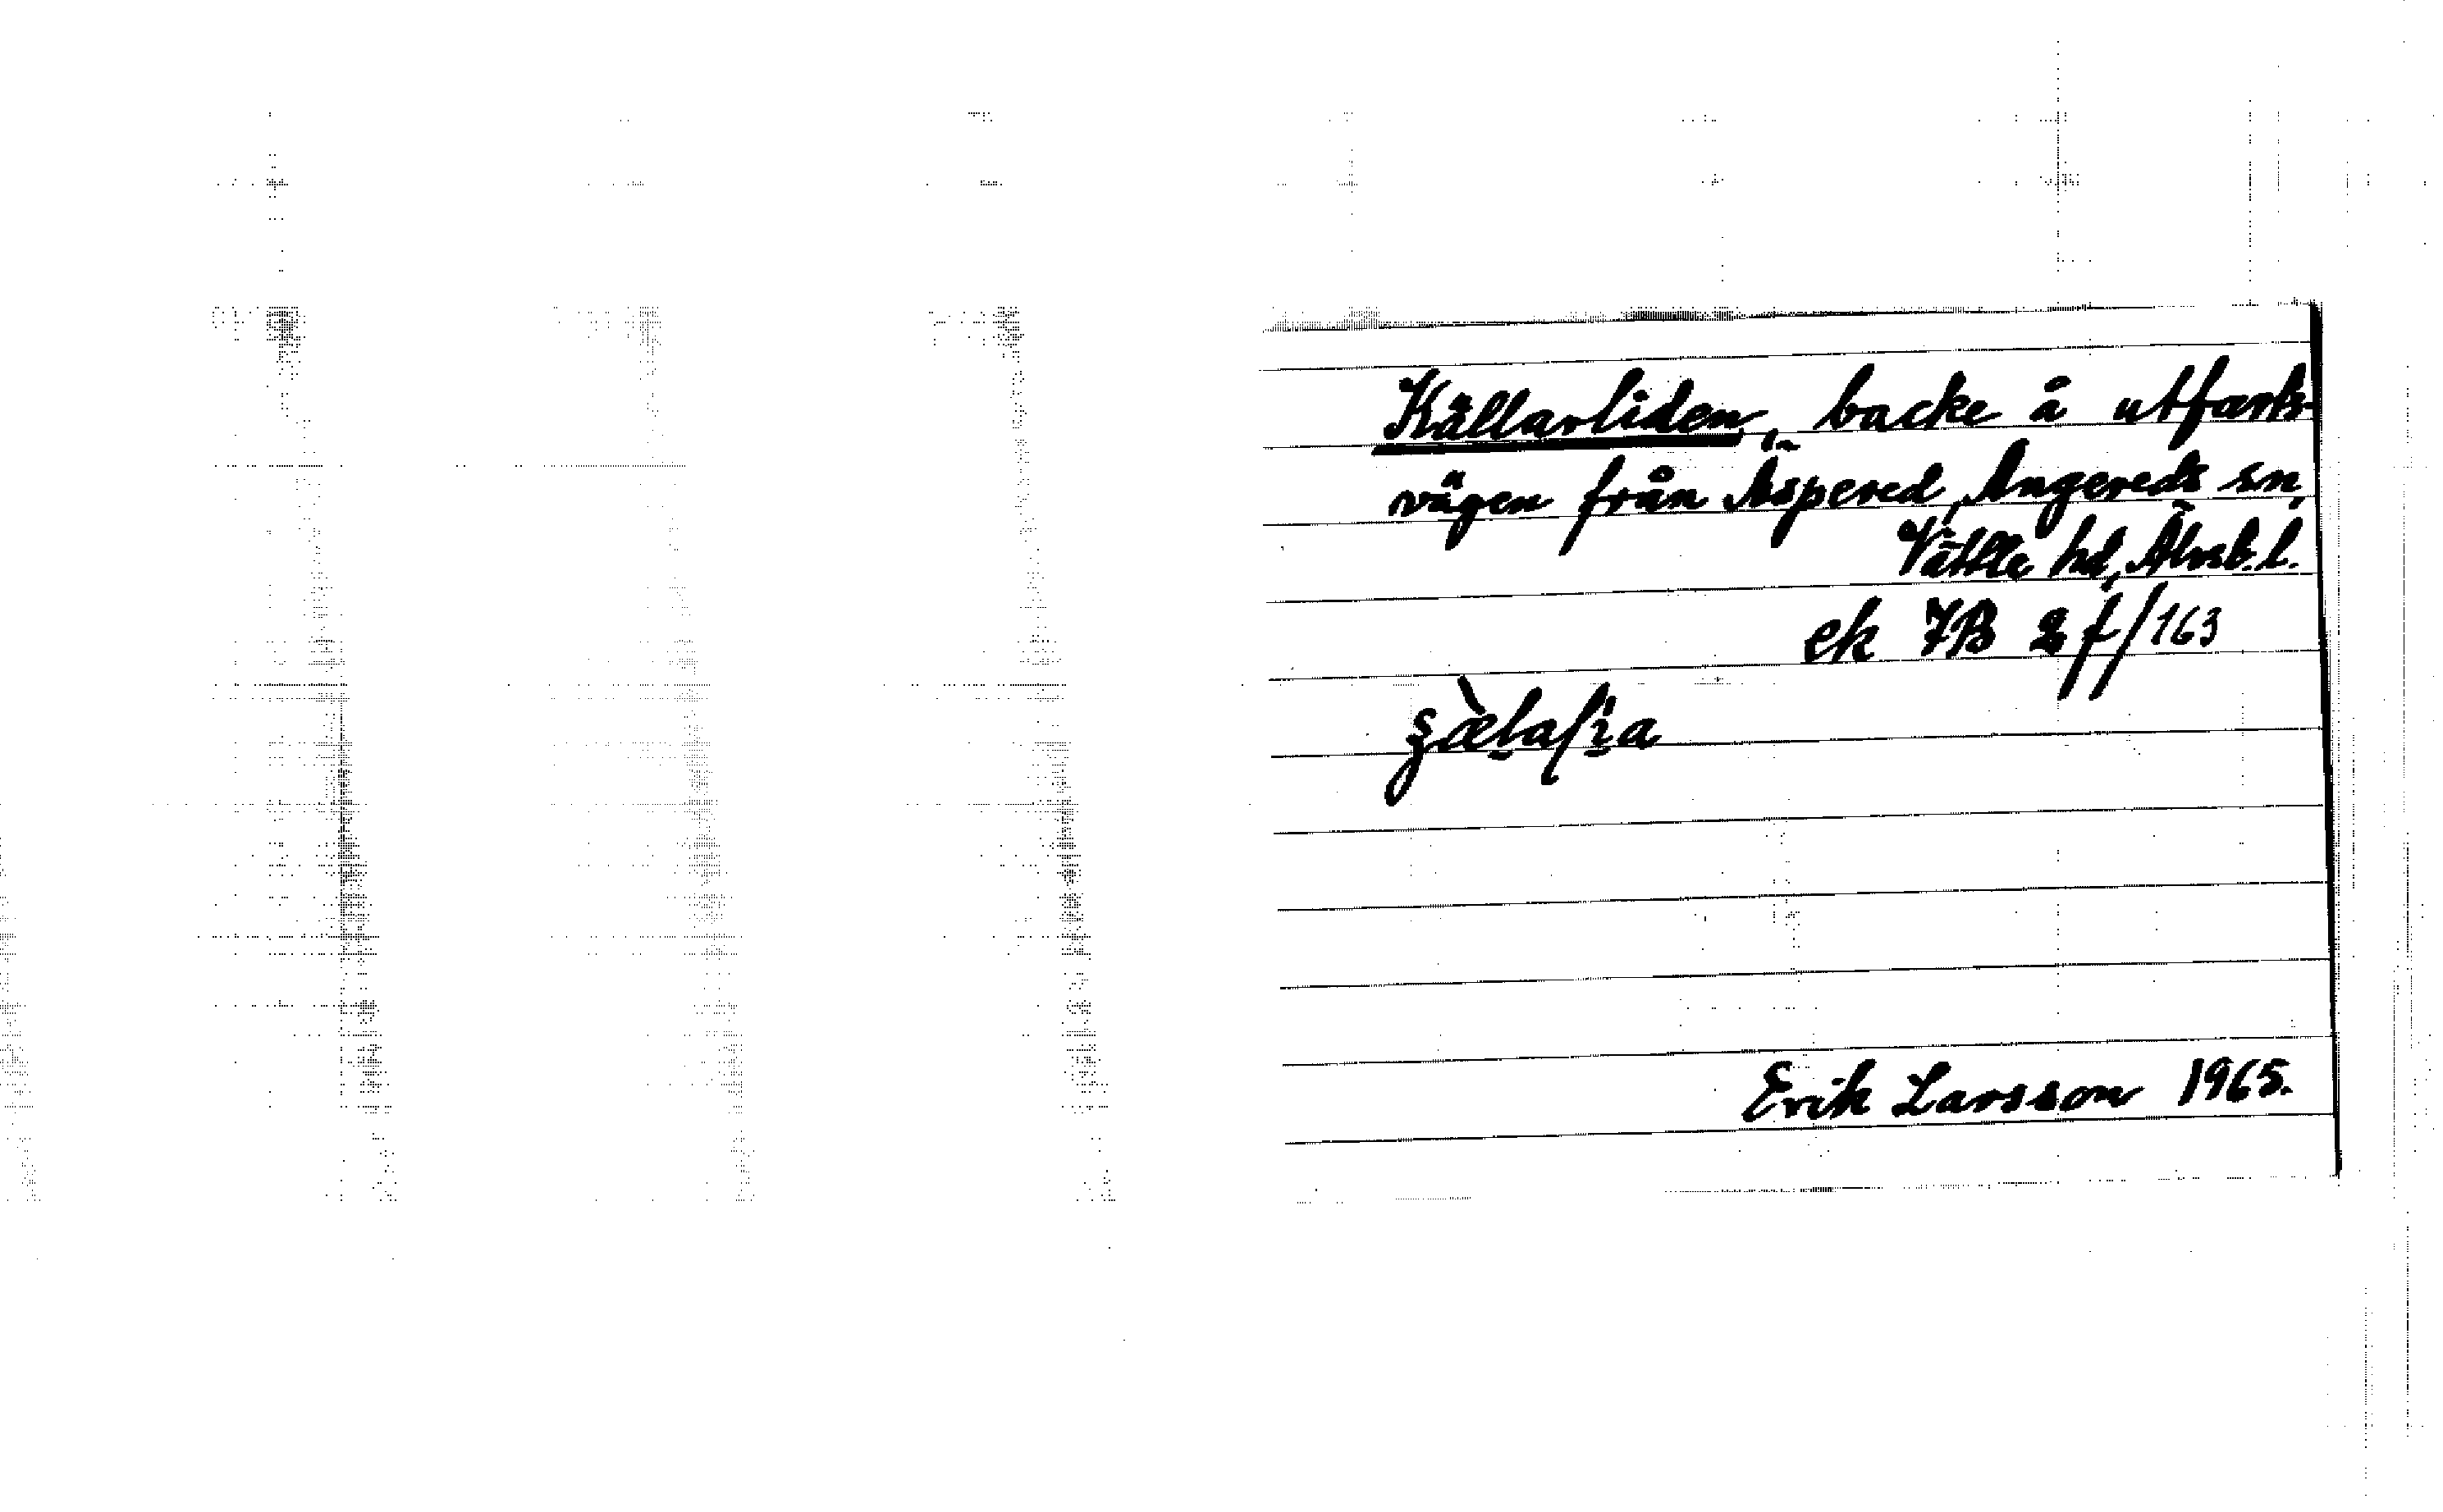 Källarliden, backe å utfarts-
vägen från Äspered, Angereds sn,
Vättle hd, Älvsb. l.
ek 7B 2f/163
Erik Larsson 1965.